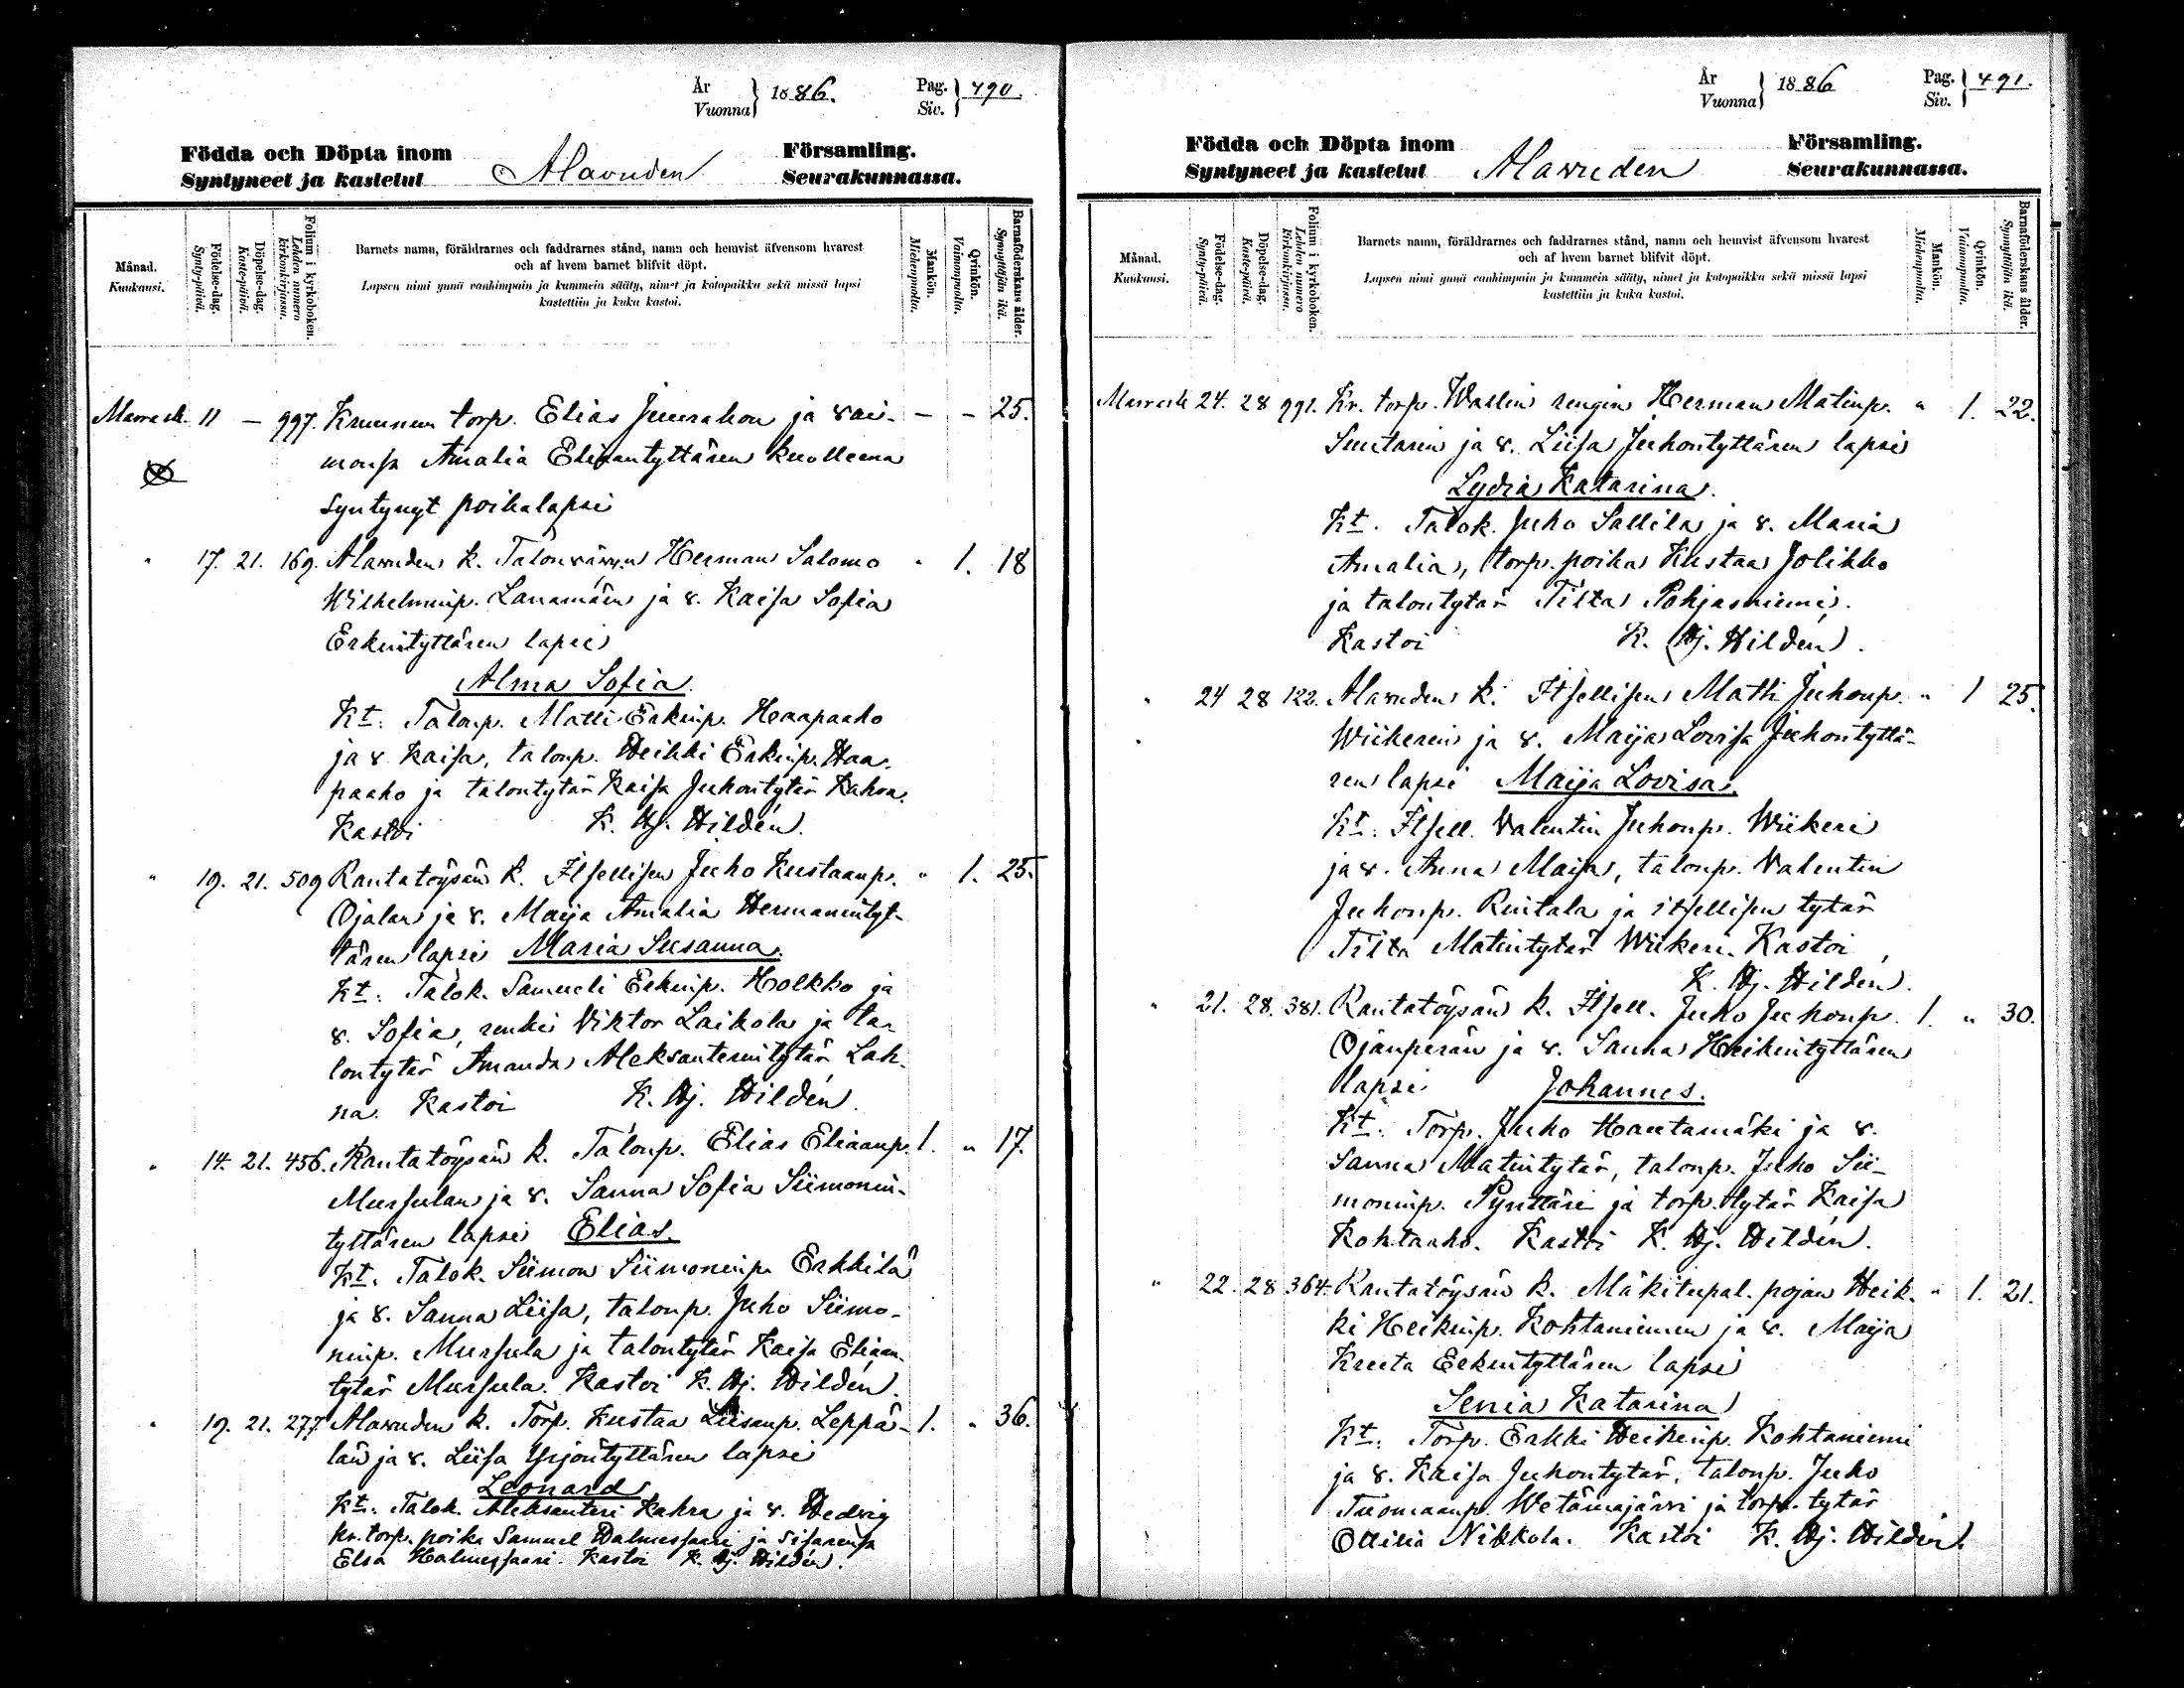 År
Vuonna } 1886.
Pag.
Siv. } 490.
Födda och Döpta inom
Syntyneet ja kastetut
Alavuden
Församling.
Seurakunnassa.
Månad.
Kuukausi.
Födelse-dag.
Synty-päivä.
Döpelse-dag.
Kaste-päivä.
Folium i kyrkoboken.
Lehden numero
kirkonkirjassa.
Barnets namn, föräldrarnes och faddrarnes stånd, namn och hemvist äfvensom hvarest
och af hvem barnet blifvit döpt.
Lapsen nimi ynnä vanhimpain ja kummein sääty, nimet ja kotopaikka sekä missä lapsi
kastettiin ja kuka kastoi.
Mankön.
Miehenpuolta.
Qvinkön.
Vaimonpuolta.
Barnaföderskans ålder.
Synnyttäjän ikä.
Marrask. 11 — 997. Kruunun torp. Elias Juurakon ja vai- — — 25.
monsa Amalia Eliaantyttären kuolleena
syntynyt poikalapsi
" 17. 21. 169. Alavuden k. Talonvävyn Herman Salomo " 1. 18
Wilhelminp. Lanamäen ja v. Kaisa Sofia
Erkintyttären lapsi
Alma Sofia.
Kt: Talonp. Matti Erkinp. Haapaaho
ja v. Kaisa, talonp. Heikki Erkinp. Haa-
paaho ja talontytär Kaisa Juhontytär Kahra.
Kastoi K. Hj. Hildén.
" 19. 21. 509 Rantatöysän k. Itsellisen Juho Kustaanp. " 1. 25.
Ojalan ja v. Maija Amalia Hermannintyt-
tären lapsi Maria Susanna.
Kt: Talok. Samueli Erkinp. Holkko ja
v. Sofia, renki Viktor Laikola ja ta-
lontytär Amanda Aleksanterintytär Lah-
na. Kastoi K. Hj. Hildén.
" 14. 21. 456. Rantatöysän k. Talonp. Elias Eliaanp. 1. " 17.
Mursulan ja v. Sanna Sofia Siimonin-
tyttären lapsi Elias.
Kt. Talok. Siimon Siimoninp. Erkkilä
ja v. Sanna Liisa, talonp. Juho Siimo-
ninp. Mursula ja talontytär Kaisa Eliaan-
tytär Mursula. Kastoi K. Hj. Hildén.
" 19. 21. 277. Alavuden k. Torp. Kustaa Liisanp. Leppä- 1. " 36.
län ja v. Liisa Yrjöntyttären lapsi
Leonard
Kt: Talok. Aleksanteri Kahra ja v. Hedvig
kr. torp. poika Samuel Halmesaari ja sisarensa
Elsa Halmesaari. Kastoi K. Hj. Hildén.
År
Vuonna } 1886
Pag.
Siv. } 491.
Födda och Döpta inom
Syntyneet ja kastetut
Alavuden
Församling.
Seurakunnassa.
Månad.
Kuukausi.
Födelse-dag.
Synty-päivä.
Döpelse-dag.
Kaste-päivä.
Folium i kyrkoboken.
Lehden numero
kirkonkirjassa.
Barnets namn, föräldrarnes och faddrarnes stånd, namn och hemvist äfvensom hvarest
och af hvem barnet blifvit döpt.
Lapsen nimi ynnä vanhimpain ja kummein sääty, nimet ja kotopaikka sekä missä lapsi
kastettiin ja kuka kastoi.
Mankön.
Miehenpuolta.
Qvinkön.
Vaimonpuolta.
Barnaföderskans ålder.
Synnyttäjän ikä.
Marrask 24. 28 991. Kr. torp. Wallin rengin Herman Matinp. " 1. 22.
Suutarin ja v. Liisa Juhontyttären lapsi
Lydia Katarina.
Kt. Talok. Juho Sallila ja v. Maria
Amalia, torp. poika Kustaa Jolikko
ja talontytär Tilta Pohjasniemi.
Kastoi K. Hj. Hildén.
" 24 28 122. Alavuden k. Itsellisen Matti Juhonp. " 1 25.
Wiikerin ja v. Maija Lovisa Juhontyttä-
ren lapsi Maija Lovisa.
Kt: Itsell. Valentin Juhonp. Wiikeri
ja v. Anna Maija, talonp. Valentin
Juhonp. Rintala ja itsellisen tytär
Tilta Matintytär Wiikeri. Kastoi
K. Hj. Hildén.
" 21. 28. 381. Rantatöysän k. Itsell. Juho Juhonp. 1. " 30.
Ojanperän ja v. Sanna Heikintyttären
lapsi Johannes.
Kt: Torp. Juho Hautamäki ja v.
Sanna Matintytär, talonp. Juho Sii-
moninp. Pynttäri ja torp. tytär Kaisa
Kohtaaho. Kastoi K. Hj. Hildén.
" 22. 28 364. Rantatöysän k. Mäkitupal. pojan Heik- " 1. 21.
ki Heikinp. Kohtaniemen ja v. Maija
Kreeta Erkintyttären lapsi
Senia Katarina
Kt: Torp. Erkki Heikinp. Kohtaniemi
ja v. Kaisa Juhontytär, talonp. Juho
Tuomaanp. Wetämäjärvi ja torp. tytär
Ottilia Nikkola. Kastoi K. Hj. Hildén.